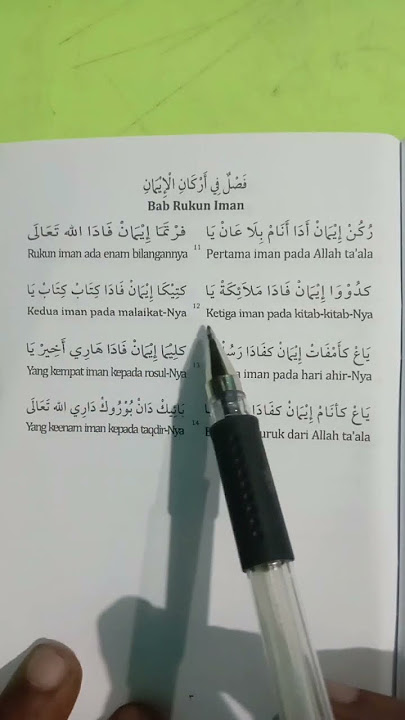 فَصْلٌ فِي أَرْكَانِ الْإِيْمَانِ
Bab Rukun Iman
رُكُنْ إِيْمَانْ أَدَا أَنَامْ بِلَا عَانْ يَا فَرْتَمَا إِيْمَانْ فَادَا الله تَعَالَى
Rukun iman ada enam bilangannya 11 Pertama iman pada Allah ta'ala
كدُوْوَا إِيْمَانْ فَادَا مَلَائِكَةْ يَا كتِيْكَا إِيْمَانْ فَادَا كِتَابْ كِتَابْ يَا
Kedua iman pada malaikat-Nya 12 Ketiga iman pada kitab-kitab-Nya
يَاغْ كأَمْفَاتْ إِيْمَانْ كفَادَا كلِيْمَا إِيْمَانْ فَادَا هَارِي أَخِيرْ يَا
Yang kempat iman kepada rosul-Nya iman pada hari ahir-Nya
يَاغْ كأَنَامْ إِيْمَانْ كفَادَا بَائِيكْ دَانْ بُوْرُوكْ دَارِي الله تَعَالَى
Yang keenam iman kepada taqdir-Nya 14 dari Allah ta'ala
٣